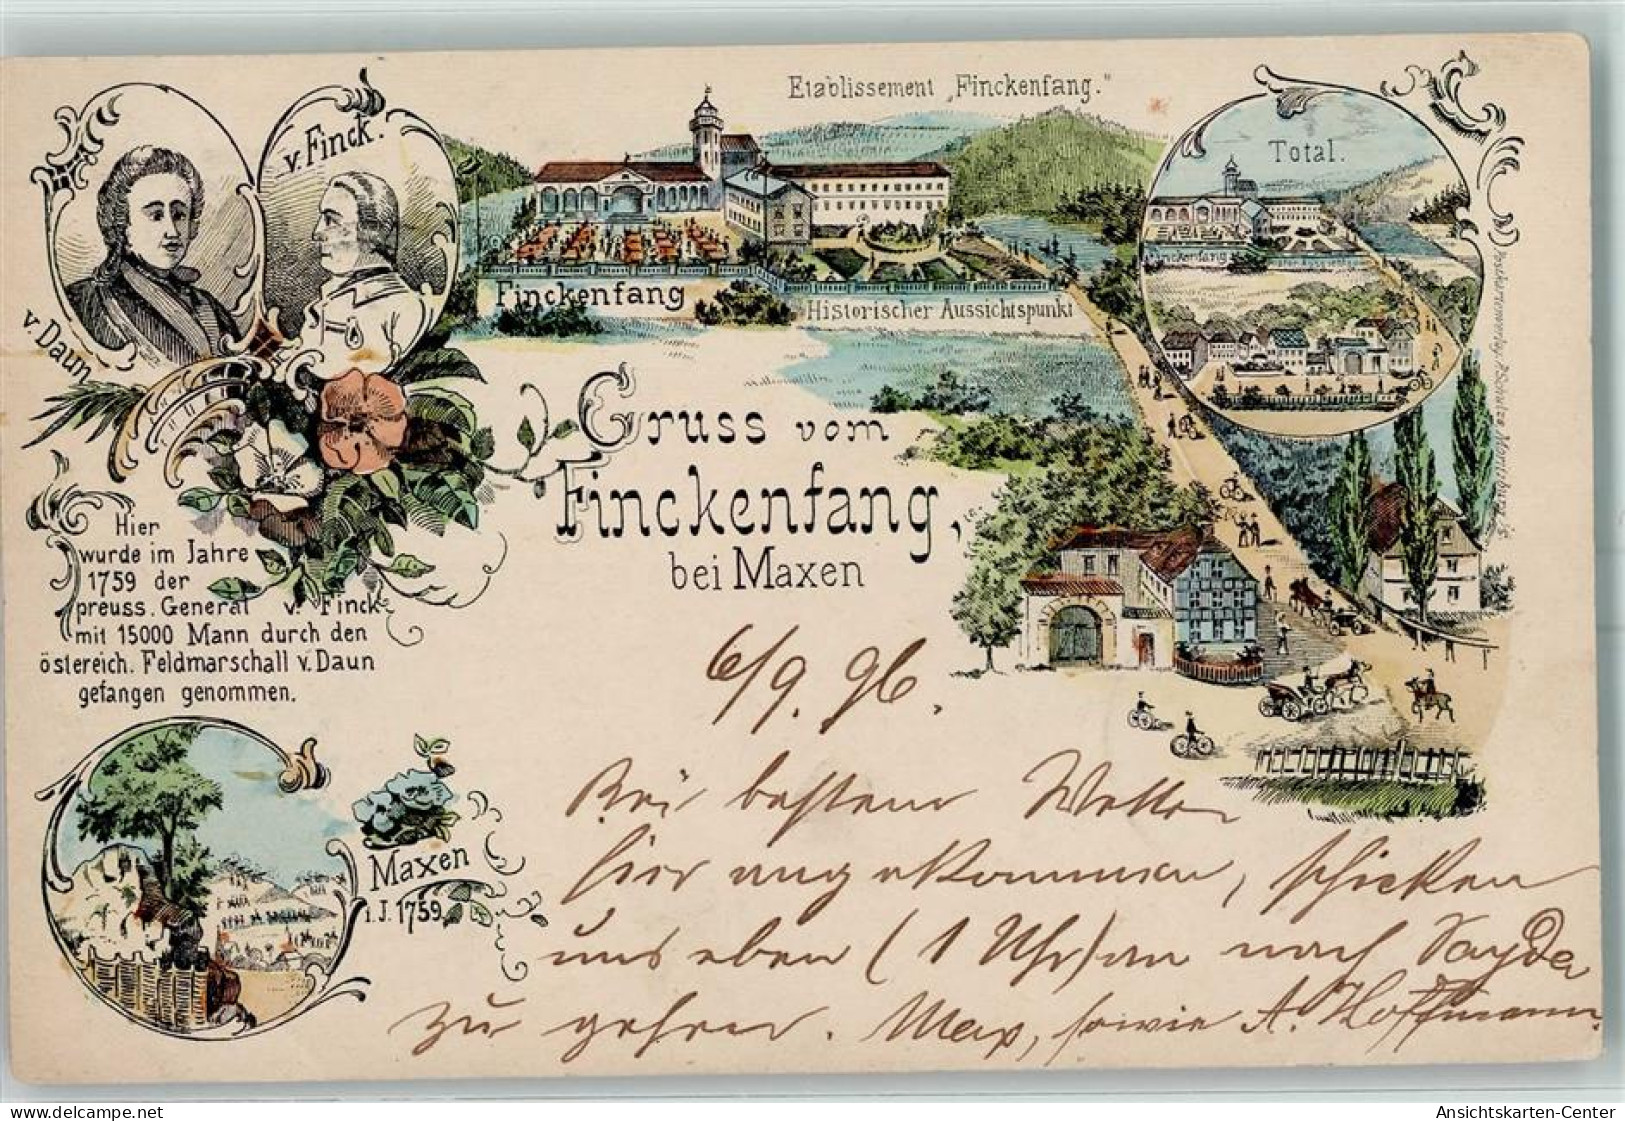 Etablissement „Finckenfang."
v. Finck.
v. Daun
Total.
Finckenfang
Historischer Aussichtspunkt
Finckenfang
Gruss vom
Finckenfang,
bei Maxen
Hier
wurde im Jahre
1759 der
preuss. General v. Finck
mit 15000 Mann durch den
östereich. Feldmarschall v. Daun
gefangen genommen.
Maxen
i. J. 1759.
6/9. 96.
Bei bestem Wetter
hier angekommen, schicken
uns eben (1 Uhr) an nach Sayda
zu gehen. Max, sowie A. Hoffmann.
delcampe.net
Ansichtskarten-Center